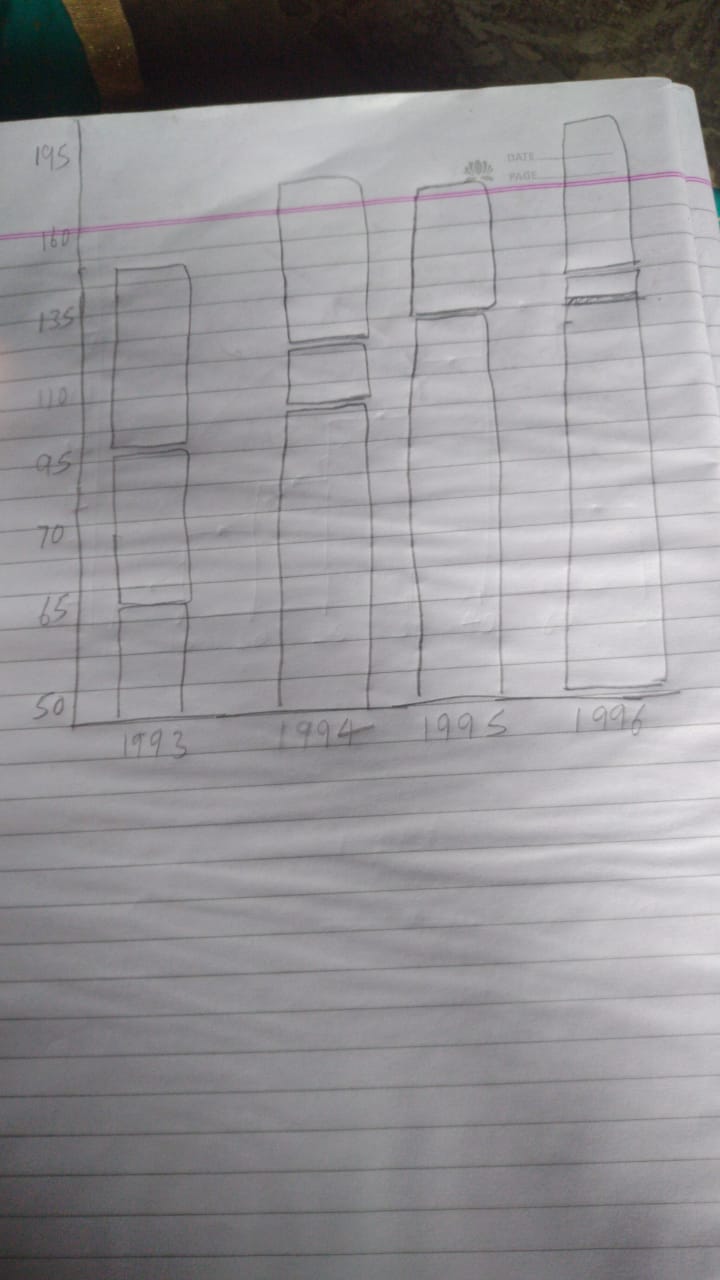 DATE
PAGE
195
160
135
110
95
70
65
50
1993 1994 1995 1996